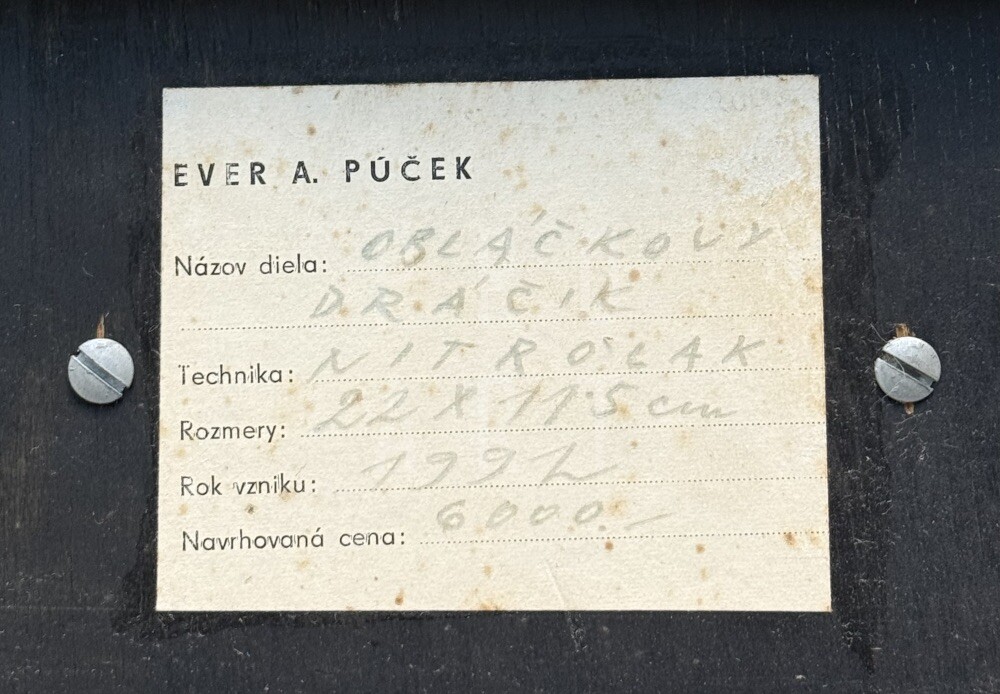 EVER A. PÚČEK
Názov diela: OBLÁČKOVÝ
DRÁČIK
Technika: NITROLAK
Rozmery: 22 X 115 cm
Rok vzniku: 1992
Navrhovaná cena: 6000.-